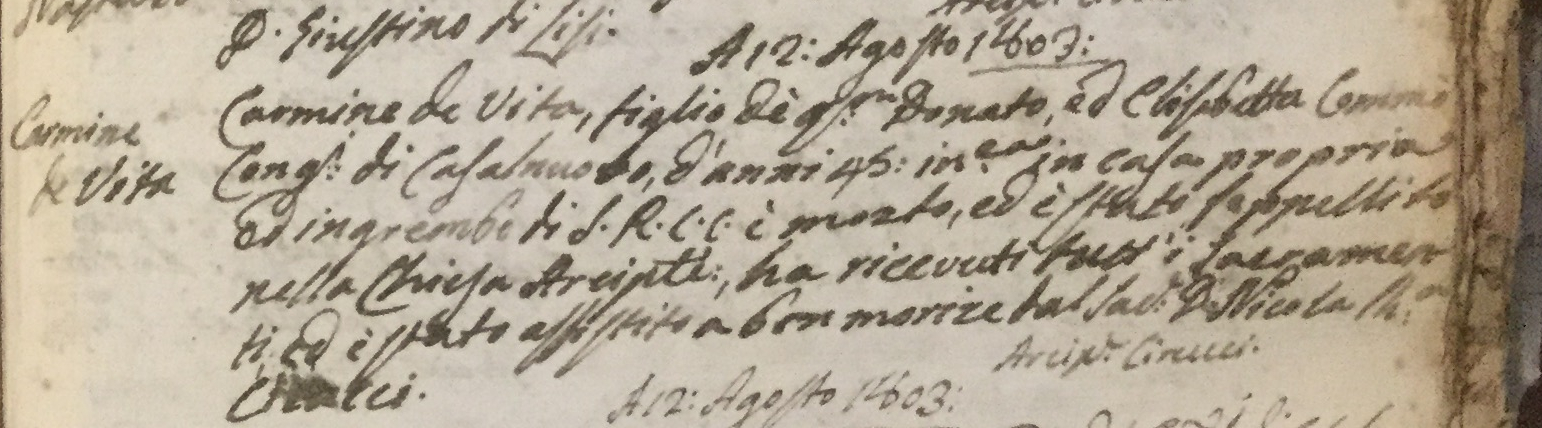 D. Giustino di Lisi.
A 12: Agosto 1803:
Carmine
de Vita
Carmine de Vita, figlio dè qm Donato, ed Elisabetta
Cong: di Casalnuovo, d'anni 45: in ca in casa propria
ed in grembo di S. R. C. C. è morto, ed è stato seppellito
nella Chiesa Arciple:, ha ricevuti tutt'i Sacramen
ti, ed è stato assistito a ben morire dal Sac: D. Nicola
Cirucci.
Arcipr Cirucci.
A 12: Agosto 1803: